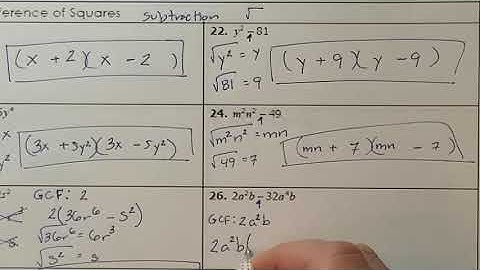 ference of Squares subtraction √
(x + 2)(x - 2)
22. y² - 81
√y² = y
√81 = 9
(y + 9)(y - 9)
5y⁴
x
y²
(3x + 5y²)(3x - 5y²)
24. m²n² - 49
√m²n² = mn
√49 = 7
(mn + 7)(mn - 7)
GCF: 2
2(36r⁶ - s²)
√36r⁶ = 6r³
√s² = s
26. 2a²b - 32a⁴b
GCF: 2a²b
2a²b(